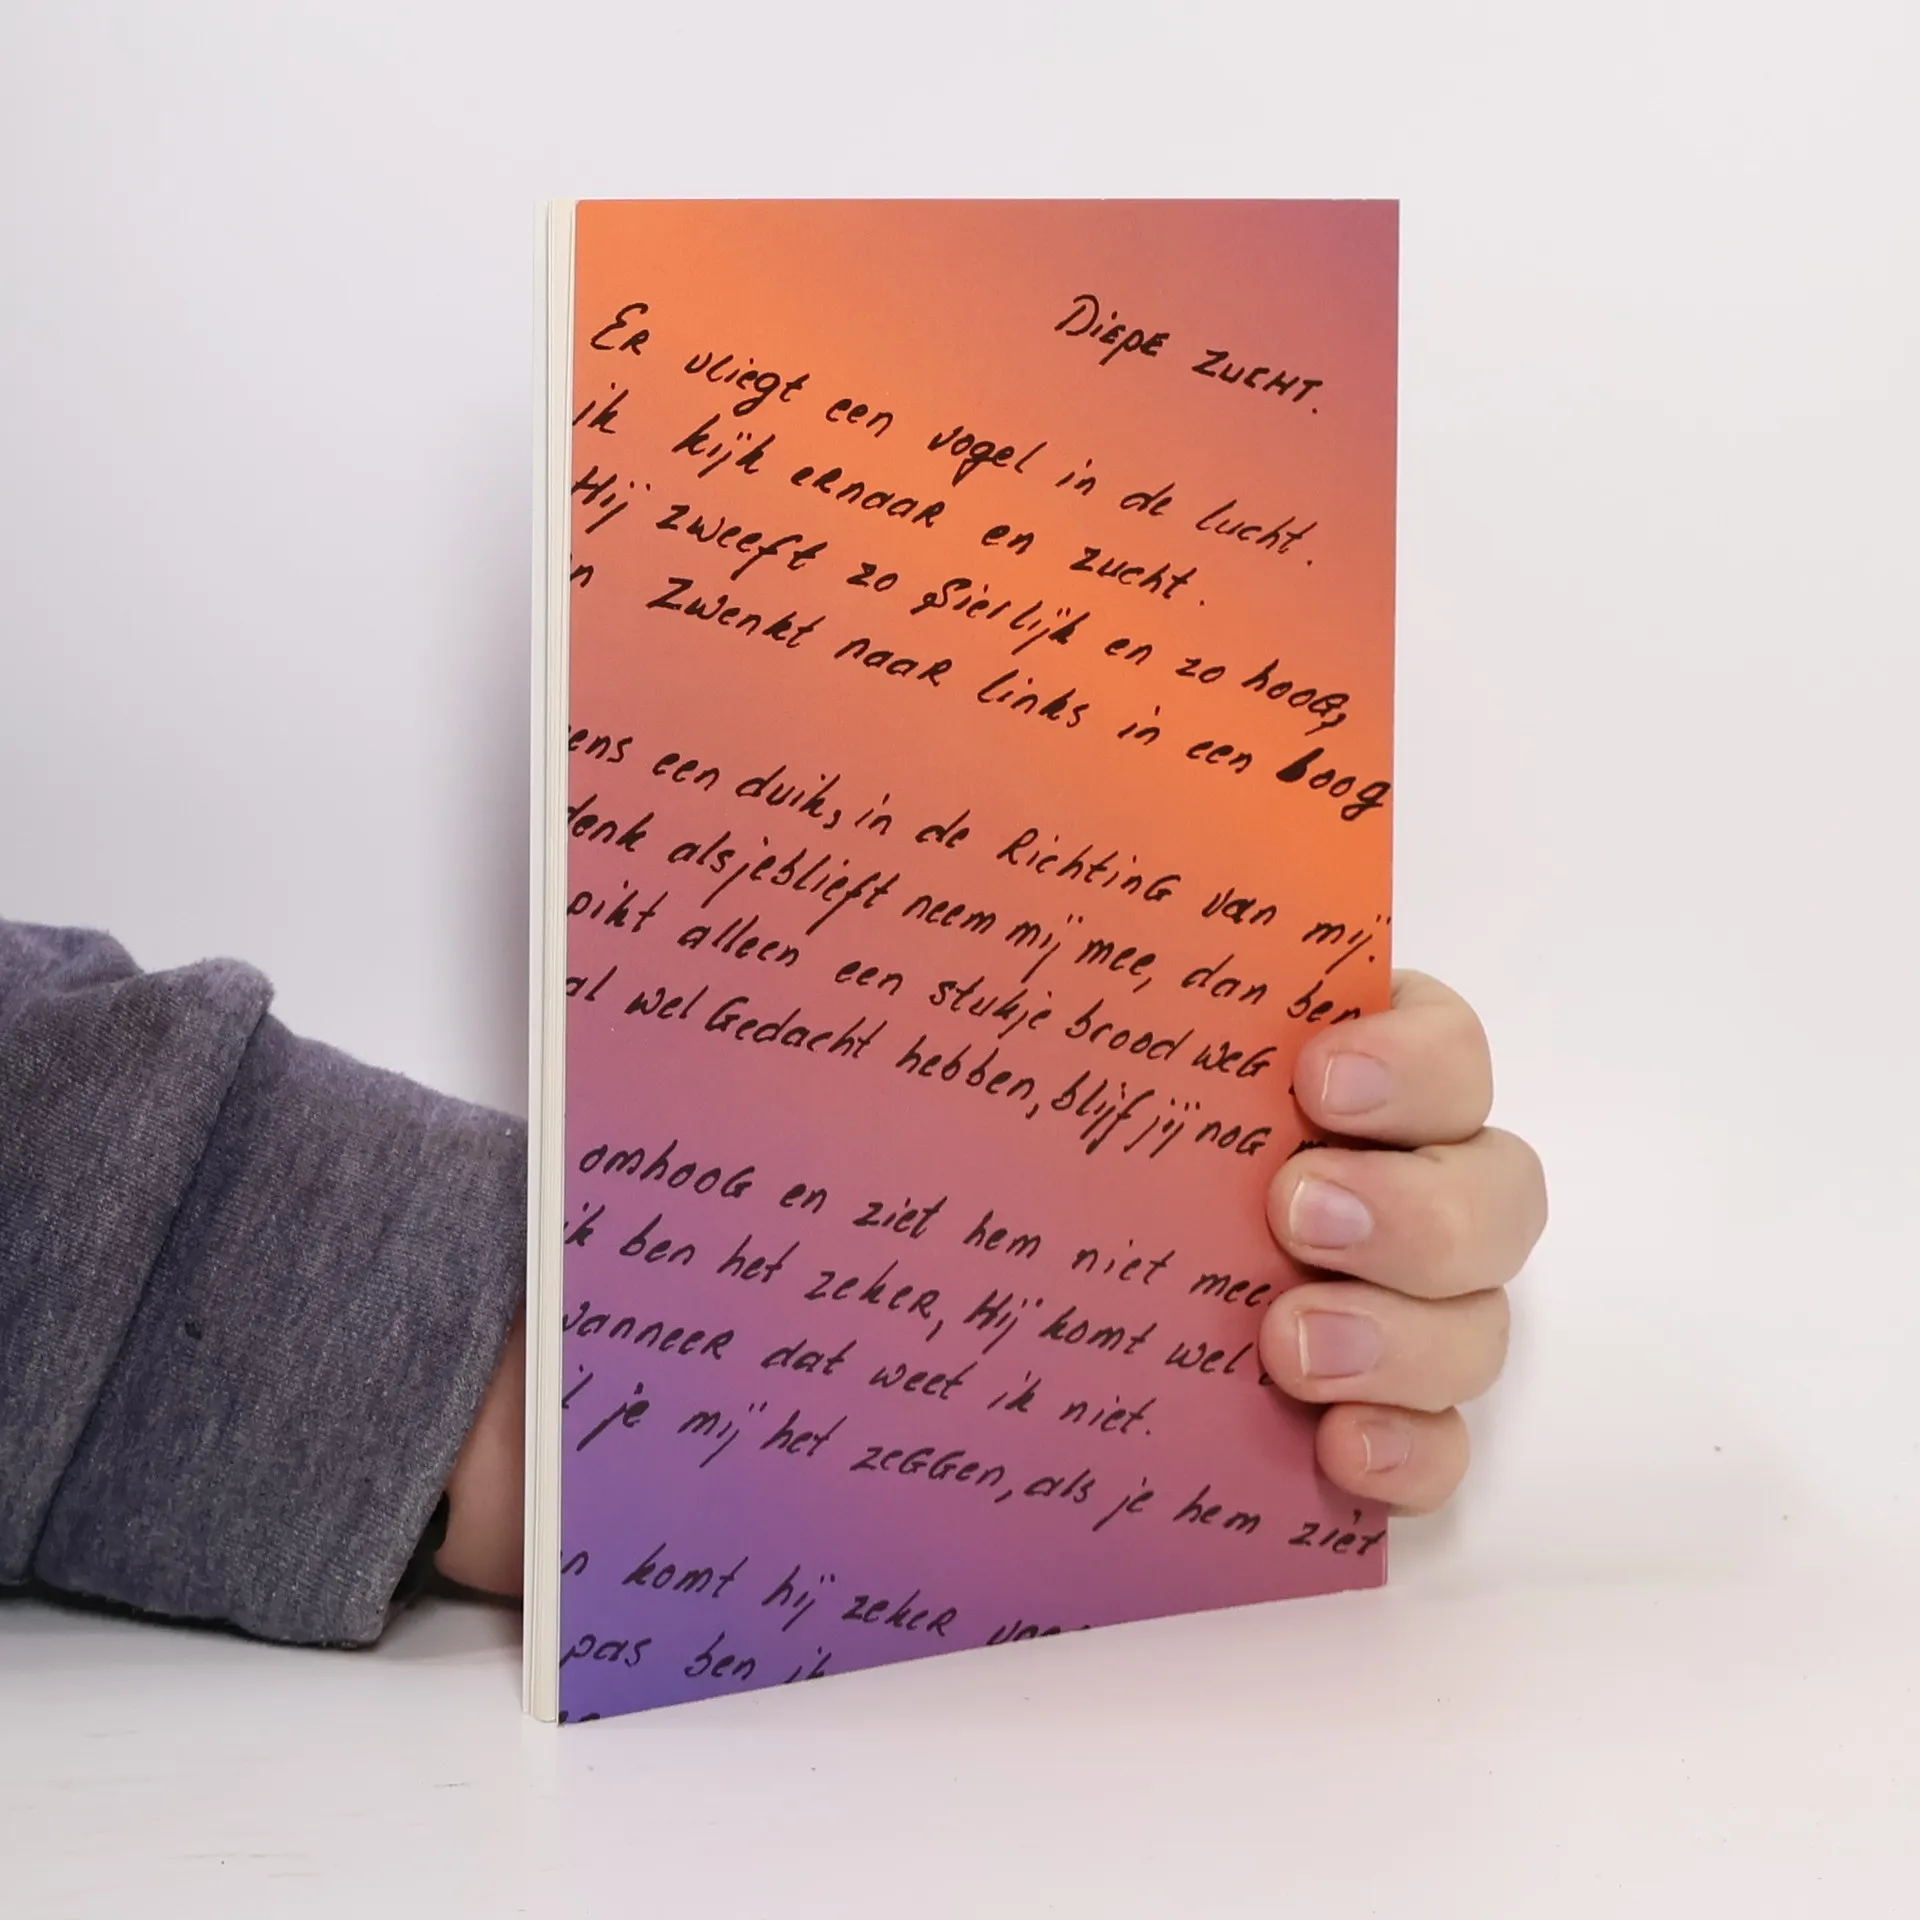 Diepe zucht.
Er vliegt een vogel in de lucht.
ik kijk ernaar en zucht.
Hij zweeft zo sierlijk en zo hoog,
n zwenkt naar links in een boog
ens een duik, in de Richting van mij.
denk alsjeblieft neem mij mee, dan ben
pikt alleen een stukje brood weg
al wel Gedacht hebben, blijf jij nog
omhoog en ziet hem niet mee.
ik ben het zeker, Hij komt wel
wanneer dat weet ik niet.
l je mij het zeggen, als je hem ziet
n komt hij zeker
pas ben ik